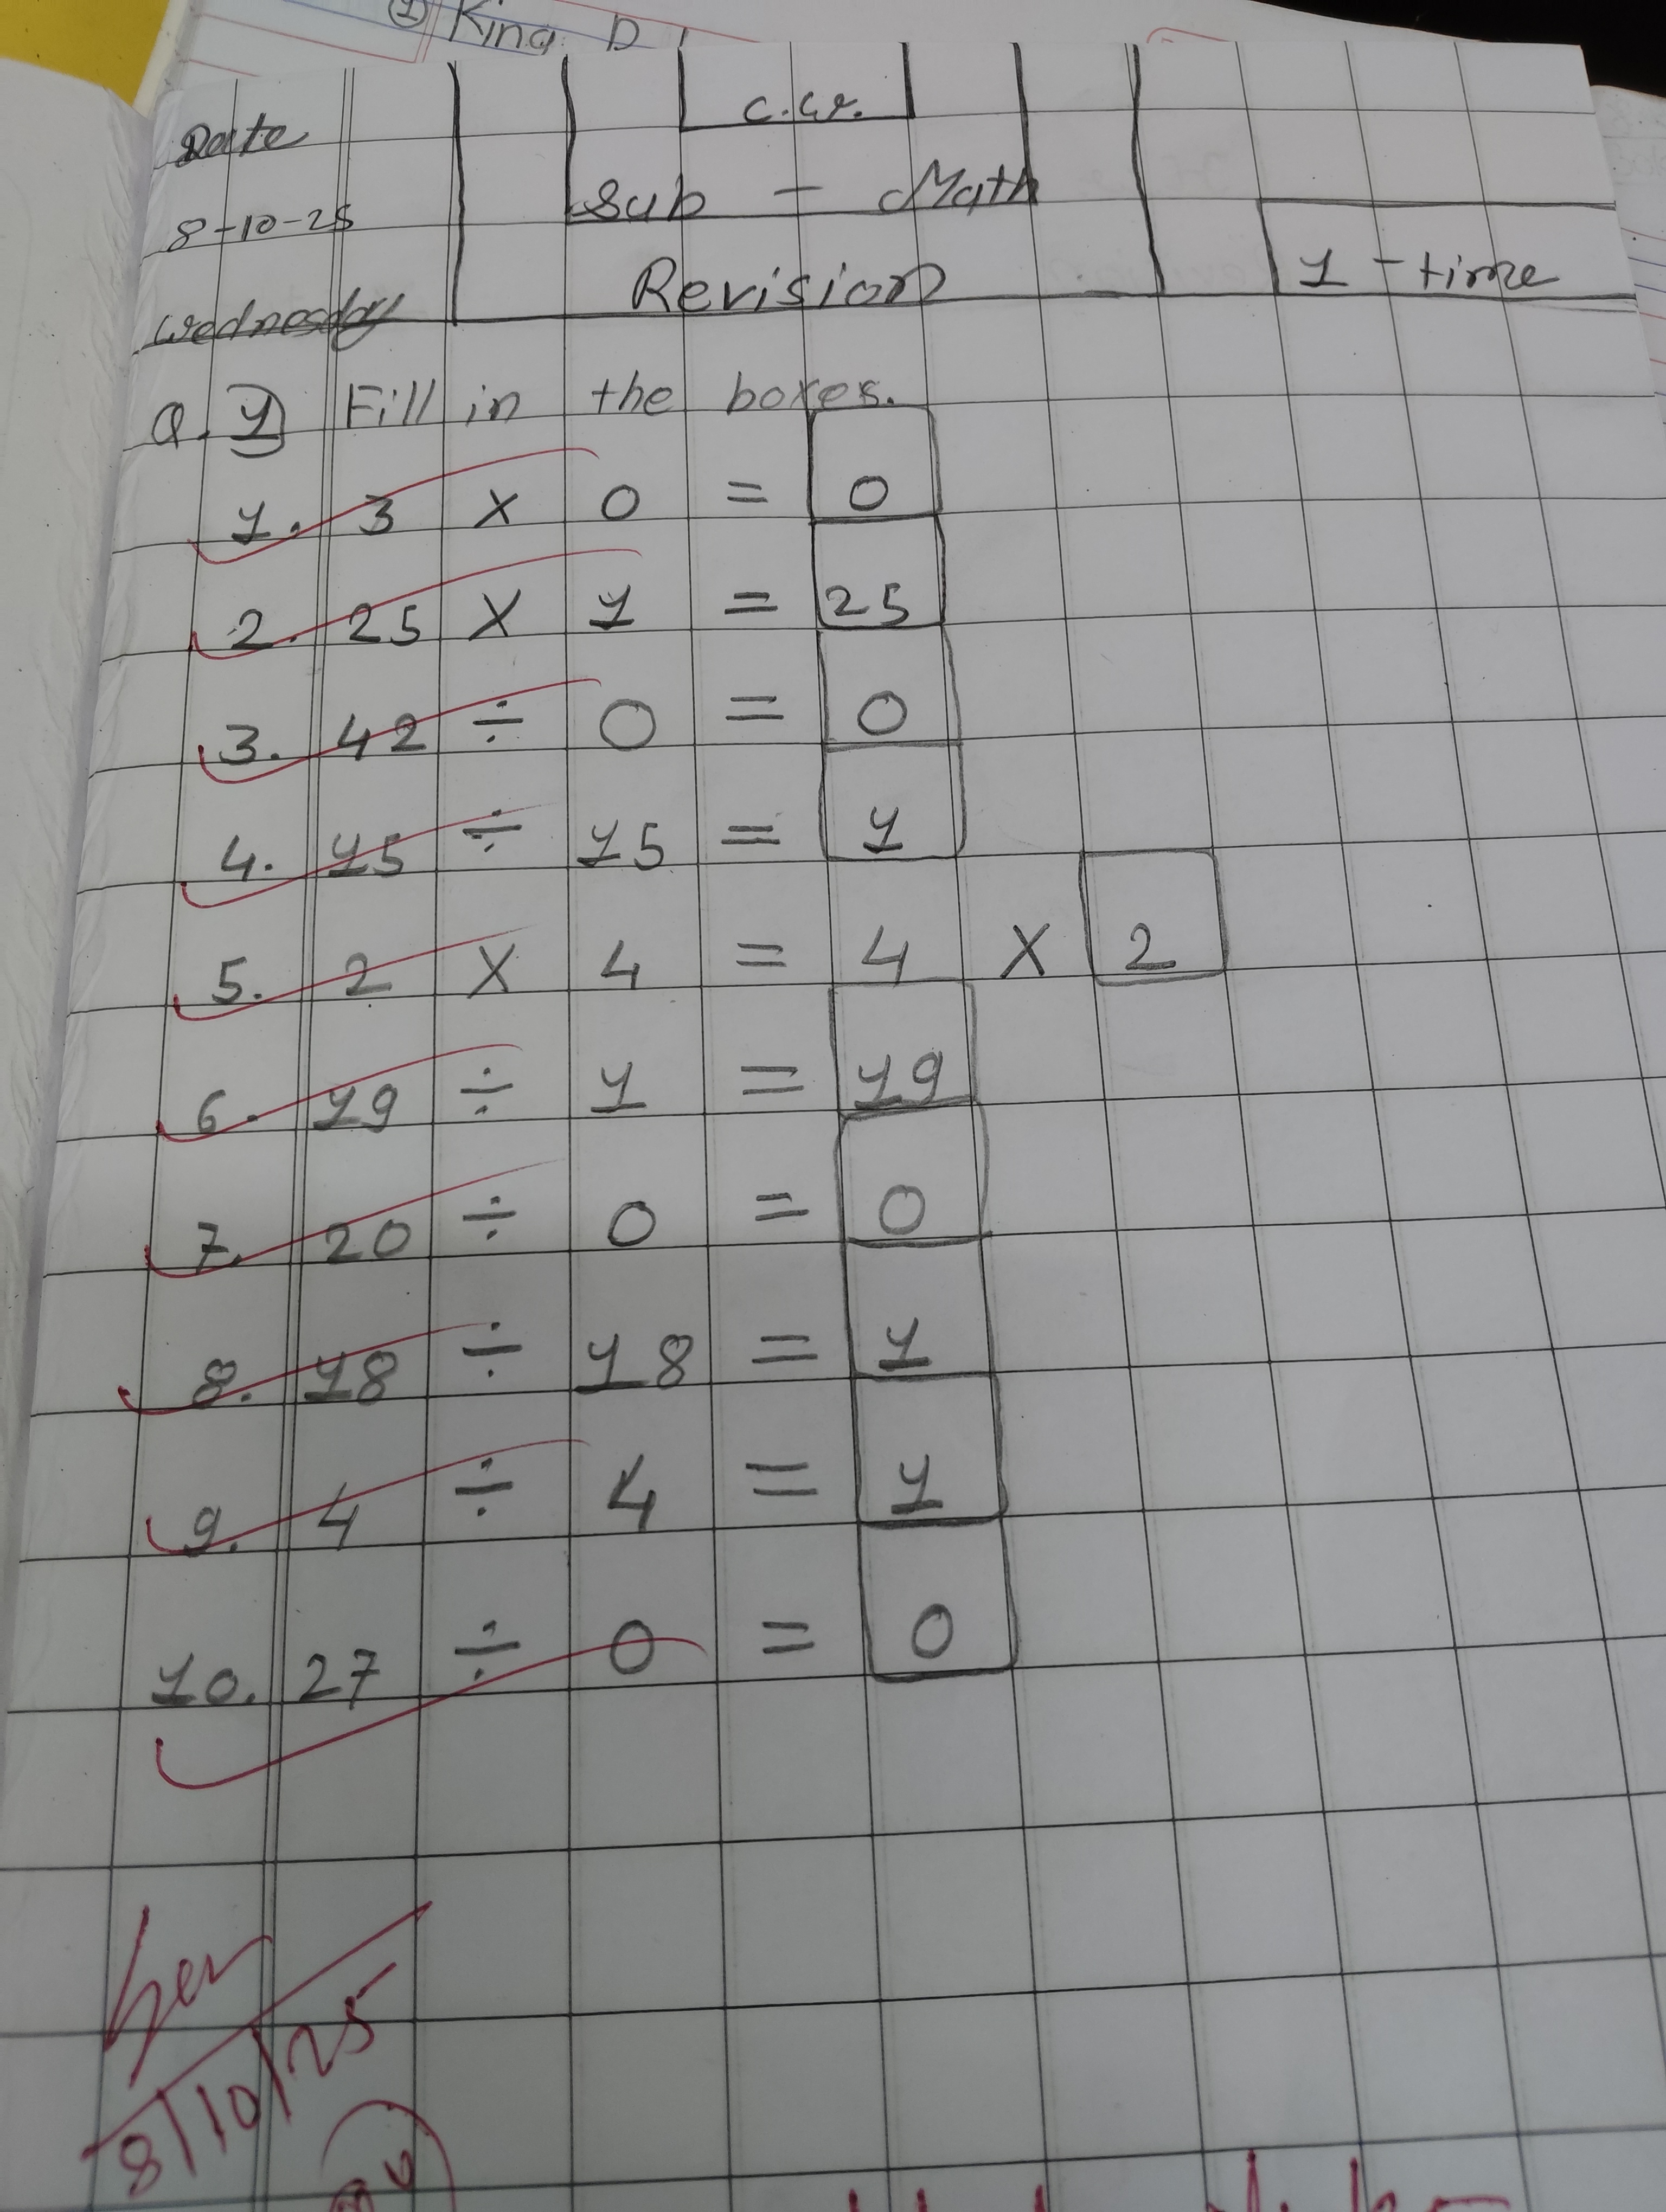 ① King D
C.W.
Date
Sub - Math
8-10-25
Revision
1 - time
Wednesday
Q.1) Fill in the boxes.
1. 3 × 0 = 0
2. 25 × 1 = 25
3. 42 ÷ 0 = 0
4. 15 ÷ 15 = 1
5. 2 × 4 = 4 × 2
6. 19 ÷ 1 = 19
7. 20 ÷ 0 = 0
8. 18 ÷ 18 = 1
9. 4 ÷ 4 = 1
10. 27 ÷ 0 = 0
8/10/25